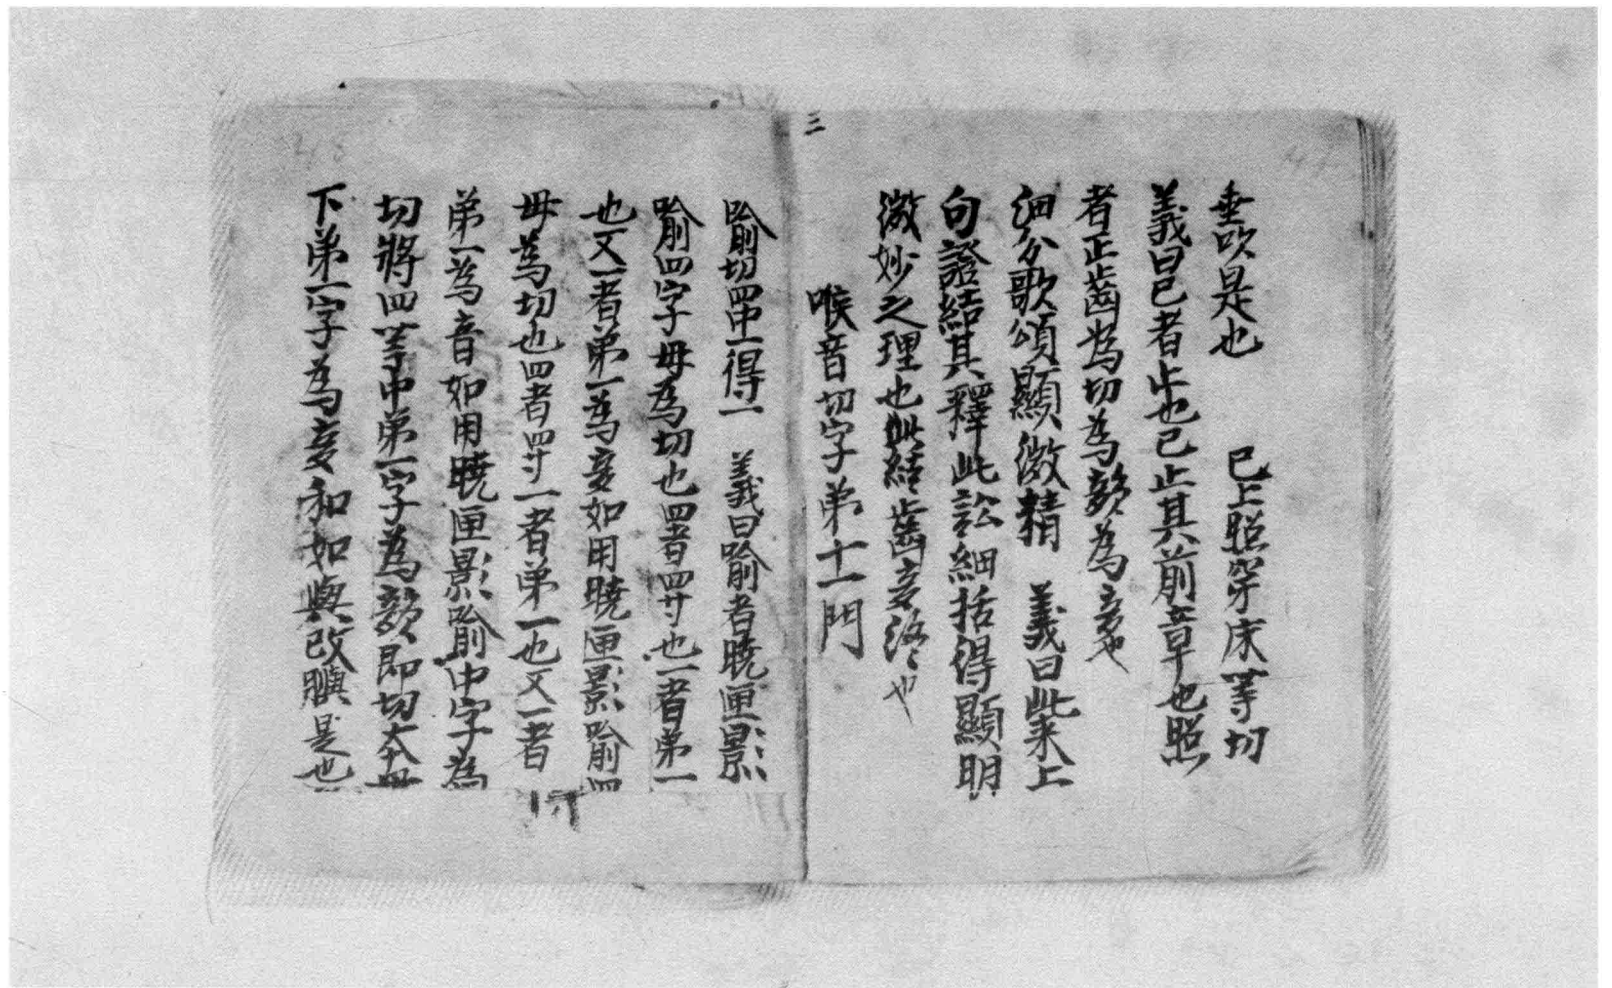 垂吹是也　已上照穿床等切
義曰已者止也已止其前章也照
者正齒為切為韻為变也
细分歌頌顯微精　義曰此来上
句證結其釋此訟細括得顯明
微妙之理也此結齒变终也
三
喉音切字弟十一門
喻切四中一得一　義曰喻者曉匣影
喻四字母為切也四者四寸也一者弟一
也又一者弟一為变如用曉匣影喻四
母為切也四者四寸一者弟一也又一者
弟一為音如用曉匣影喻中字為
切將四等中弟一字為韻即切本母
下弟一字為变和如與改䑂是也